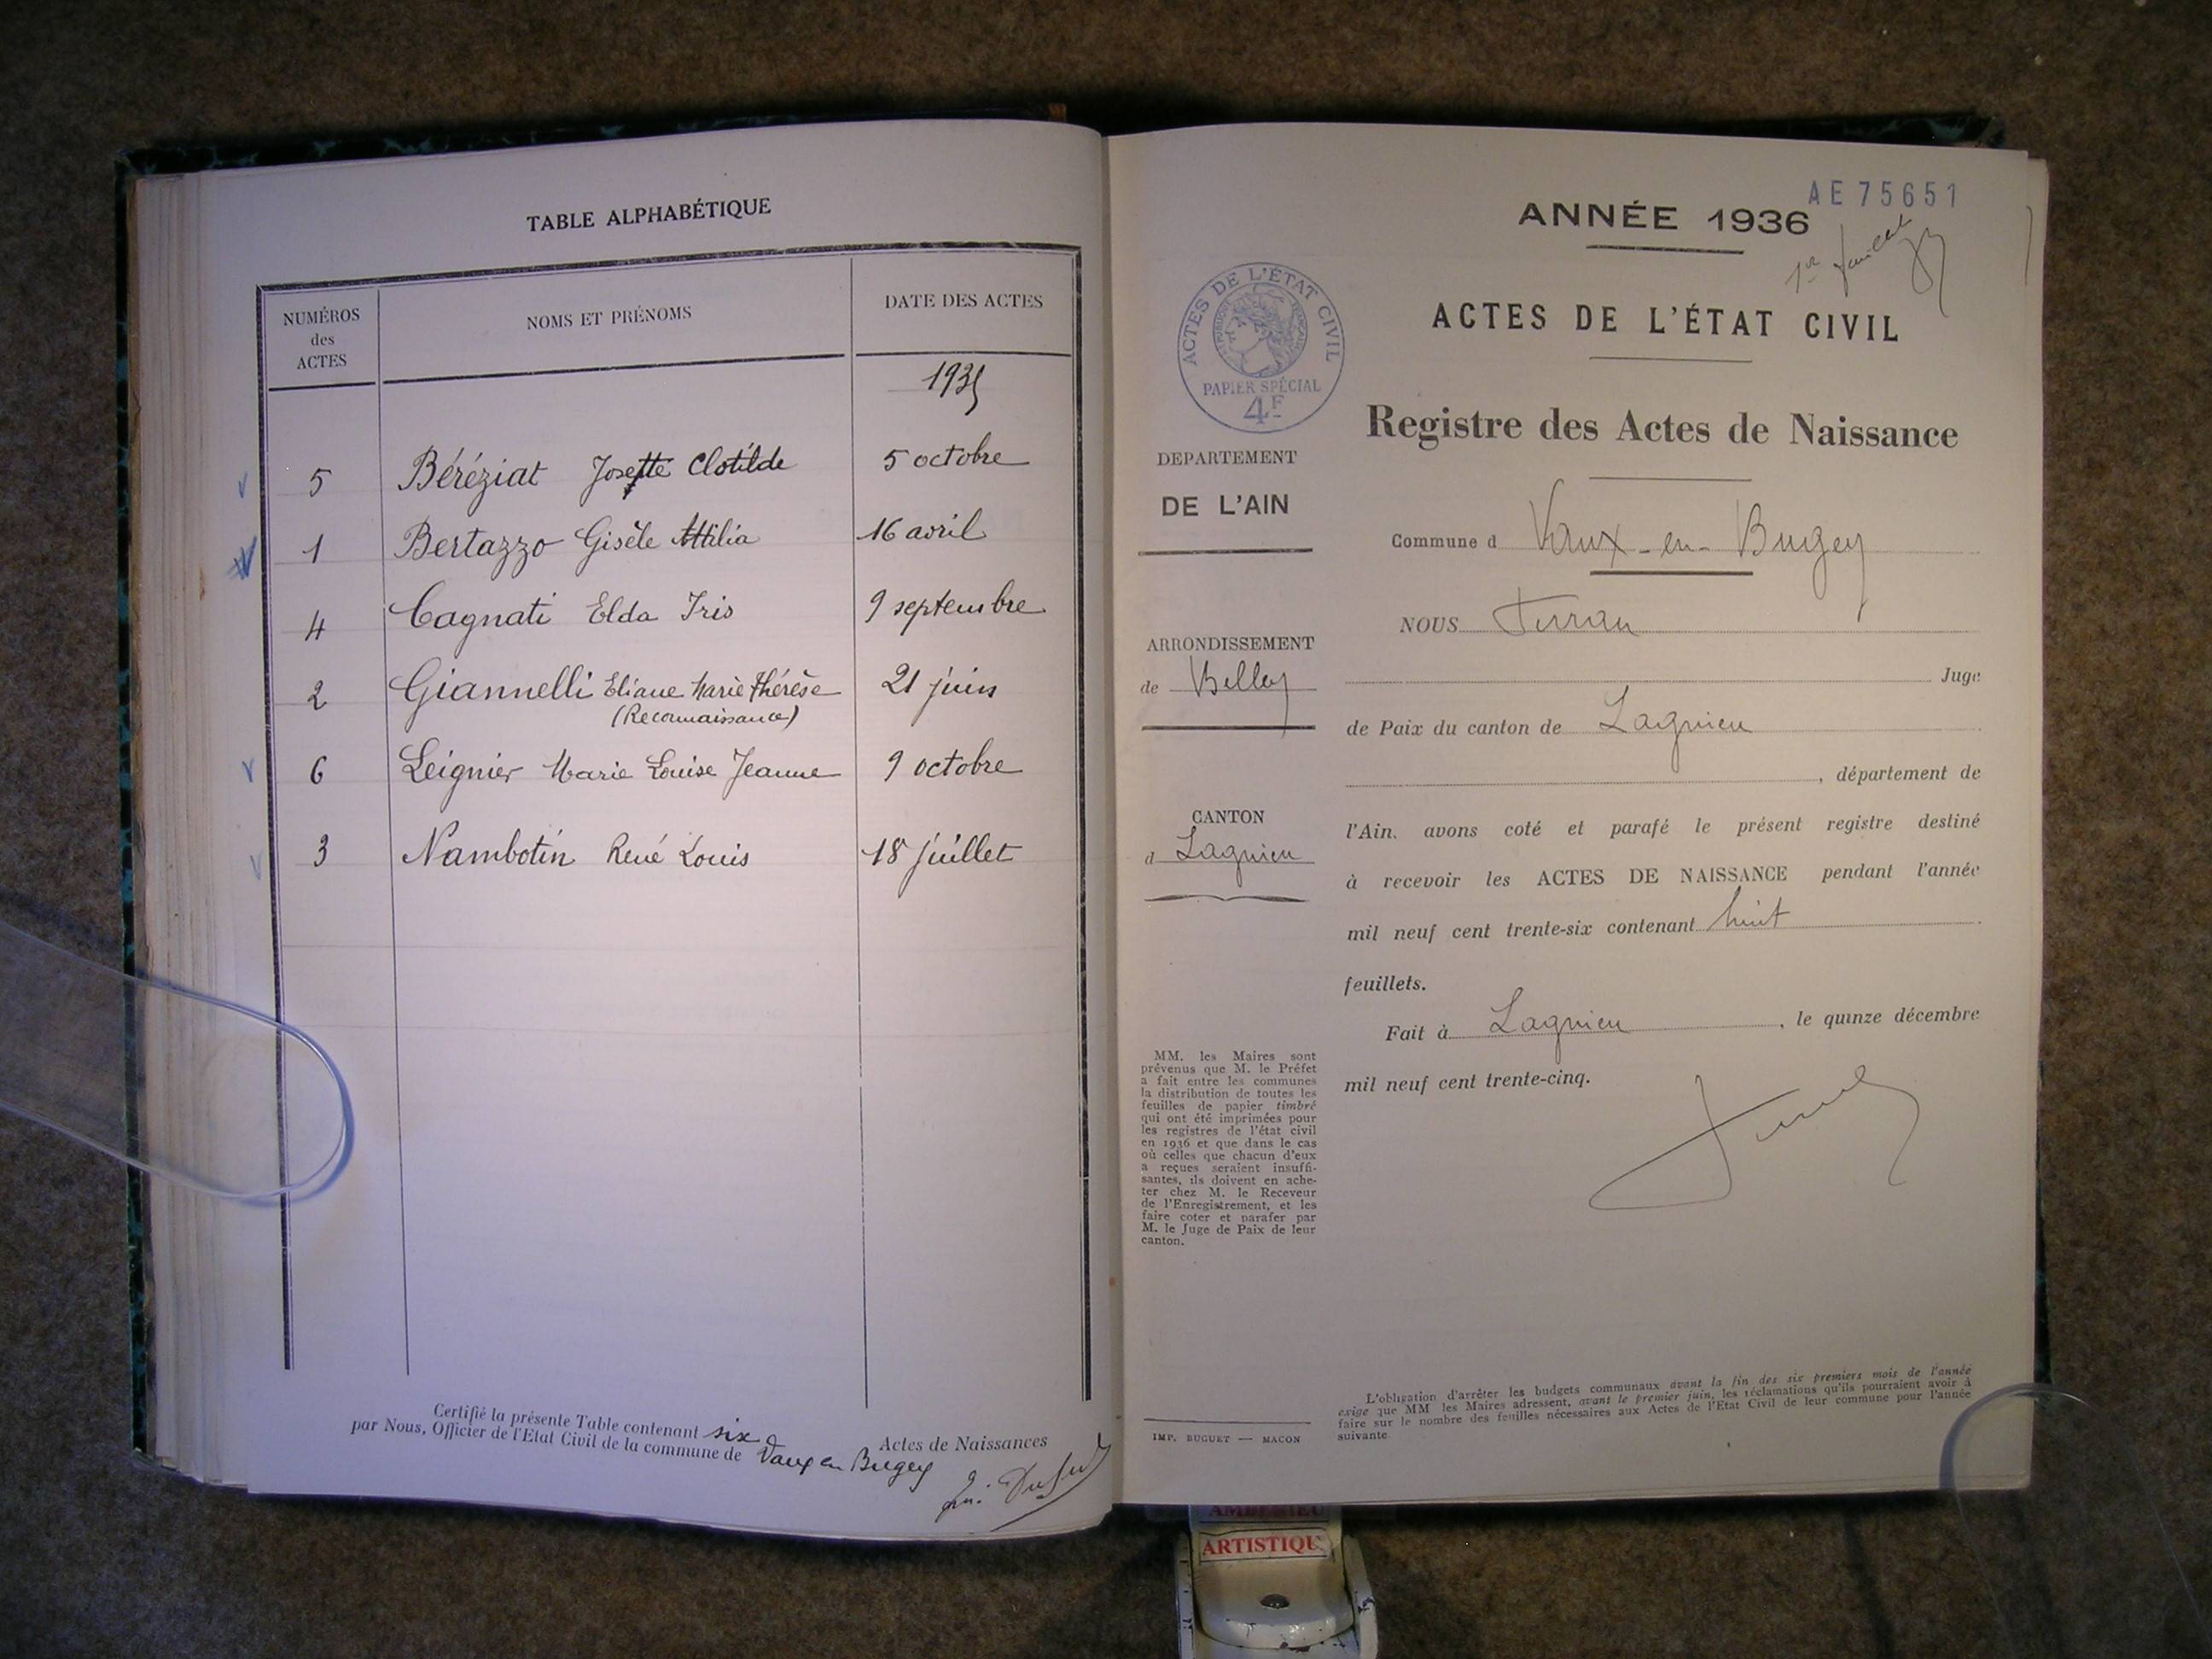 TABLE ALPHABÉTIQUE
NUMÉROS
des
ACTES
NOMS ET PRÉNOMS
DATE DES ACTES
1935
5 Béréziat Josette Clotilde 5 octobre
1 Bertazzo Gisèle Attilia 16 avril
4 Cagnati Elda Iris 9 septembre
2 Giannelli Eliane Marie Thérèse 21 juin
(Reconnaissance)
6 Leignier Marie Louise Jeanne 9 octobre
3 Nambotin René Louis 18 juillet
Certifié la présente Table contenant six Actes de Naissances
par Nous, Officier de l'Etat Civil de la commune de Vaux en Bugey
AE 75651
ANNÉE 1936
1er feuillet
ACTES DE L'ÉTAT CIVIL
ACTES DE L'ÉTAT CIVIL
RÉPUBLIQUE FRANÇAISE
PAPIER SPÉCIAL
4F
Registre des Actes de Naissance
DEPARTEMENT
DE L'AIN
Commune d Vaux-en-Bugey
NOUS
ARRONDISSEMENT
de Belley
Juge
de Paix du canton de Lagnieu
, département de
CANTON
d Lagnieu
l'Ain. avons coté et parafé le présent registre destiné
à recevoir les ACTES DE NAISSANCE pendant l'année
mil neuf cent trente-six contenant huit
feuillets.
Fait à Lagnieu, le quinze décembre
mil neuf cent trente-cinq.
MM. les Maires sont
prévenus que M. le Préfet
a fait entre les communes
la distribution de toutes les
feuilles de papier timbré
qui ont été imprimées pour
les registres de l'état civil
en 1936 et que dans le cas
où celles que chacun d'eux
a reçues seraient insuffi-
santes, ils doivent en ache-
ter chez M. le Receveur
de l'Enregistrement, et les
faire coter et parafer par
M. le Juge de Paix de leur
canton.
IMP. BUGUET — MACON
L'obligation d'arrêter les budgets communaux avant la fin des six premiers mois de l'année
exige que MM les Maires adressent, avant le premier juin, les réclamations qu'ils pourraient avoir à
faire sur le nombre des feuilles nécessaires aux Actes de l'Etat Civil de leur commune pour l'année
suivante.
AMBERIEU
ARTISTIQU